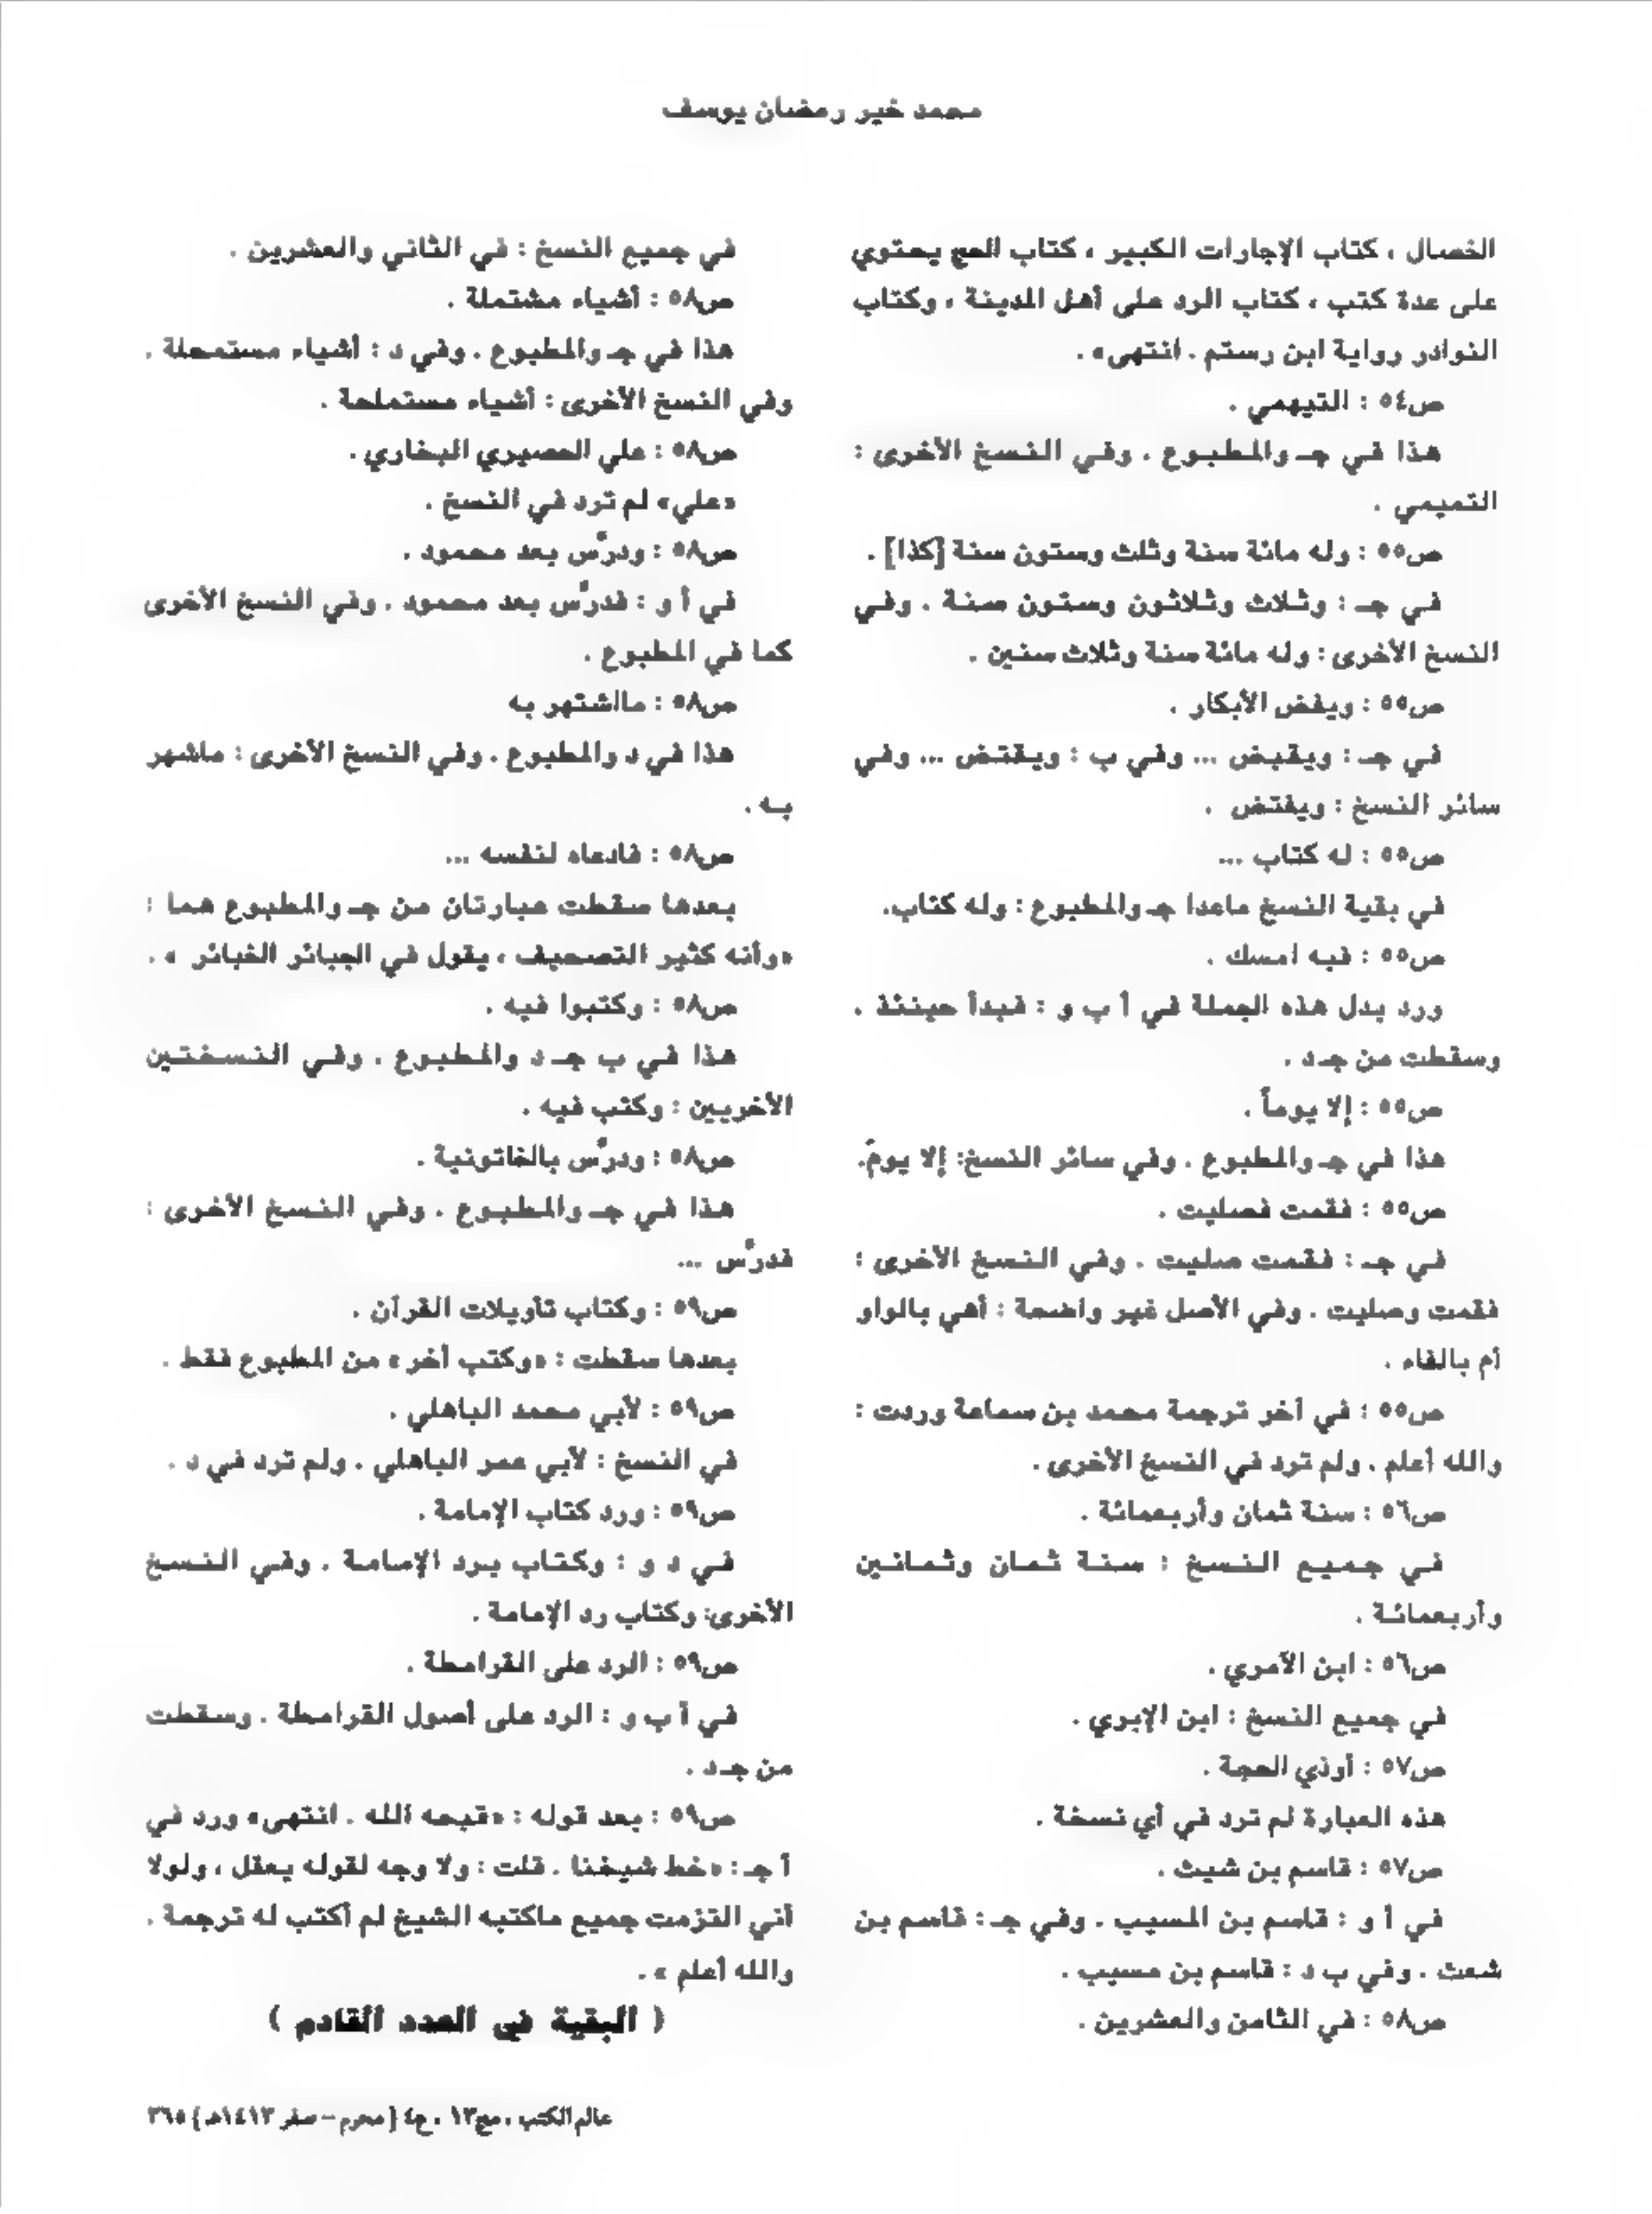 محمد خير رمضان يوسف
الخصال ، كتاب الإجارات الكبير ، كتاب الحج يحتوي
على عدة كتب ، كتاب الرد على أهل المدينة ، وكتاب
النوادر رواية ابن رستم . انتهى» .
ص٥٤ : التيهمي .
هذا في جـ والمطبوع . وفي النسخ الأخرى :
التميمي .
ص٥٥ : وله مائة سنة وثلث وستون سنة [كذا] .
في جـ : وثلاث وثلاثون وستون سنة . وفي
النسخ الأخرى : وله مائة سنة وثلاث سنين .
ص٥٥ : ويفض الأبكار .
في جـ : ويقبض ... وفي ب : ويقتض ... وفي
سائر النسخ : ويفتض .
ص٥٥ : له كتاب ...
في بقية النسخ ماعدا جـ والمطبوع : وله كتاب.
ص٥٥ : فيه امسك .
ورد بدل هذه الجملة في أ ب و : فبدأ حينئذ .
وسقطت من جـ د .
ص٥٥ : إلا يوماً .
هذا في جـ والمطبوع . وفي سائر النسخ: إلا يومَ.
ص٥٥ : فقمت فصليت .
في جـ : فقمت صليت . وفي النسخ الأخرى :
فقمت وصليت . وفي الأصل غير واضحة : أهي بالواو
أم بالفاء .
ص٥٥ : في آخر ترجمة محمد بن سماعة وردت :
والله أعلم . ولم ترد في النسخ الأخرى .
ص٥٦ : سنة ثمان وأربعمائة .
في جميع النسخ : سنة ثمان وثمانين
وأربعمائة .
ص٥٦ : ابن الأمري .
في جميع النسخ : ابن الإبري .
ص٥٧ : أوذي الحجة .
هذه العبارة لم ترد في أي نسخة .
ص٥٧ : قاسم بن شيث .
في أ و : قاسم بن المسيب . وفي جـ : قاسم بن
شعث . وفي ب د : قاسم بن مسيب .
ص٥٨ : في الثامن والعشرين .
في جميع النسخ : في الثاني والعشرين .
ص٥٨ : أشياء مشتملة .
هذا في جـ والمطبوع . وفي د : أشياء مستمحلة .
وفي النسخ الأخرى : أشياء مستملحة .
ص٥٨ : علي الحصيري البخاري .
«علي» لم ترد في النسخ .
ص٥٨ : ودرّس بعد محمود .
في أ و : فدرّس بعد محمود . وفي النسخ الأخرى
كما في المطبوع .
ص٥٨ : مااشتهر به
هذا في د والمطبوع . وفي النسخ الأخرى : ماشهر
به .
ص٥٨ : فادعاه لنفسه ...
بعدها سقطت عبارتان من جـ والمطبوع هما :
«وأنه كثير التصحيف ، يقول في الجبائر الخبائر » .
ص٥٨ : وكتبوا فيه .
هذا في ب جـ د والمطبوع . وفي النسختين
الأخريين : وكتب فيه .
ص٥٨ : ودرّس بالخاتونية .
هذا في جـ والمطبوع . وفي النسخ الأخرى :
فدرّس ...
ص٥٩ : وكتاب تأويلات القرآن .
بعدها سقطت : «وكتب أخر» من المطبوع فقط .
ص٥٩ : لأبي محمد الباهلي .
في النسخ : لأبي عمر الباهلي . ولم ترد في د .
ص٥٩ : ورد كتاب الإمامة .
في د و : وكتاب يرد الإمامة . وفي النسخ
الأخرى: وكتاب رد الإمامة .
ص٥٩ : الرد على القرامطة .
في أ ب و : الرد على أصول القرامطة . وسقطت
من جـ د .
ص٥٩ : بعد قوله : «قبحه الله . انتهى» ورد في
أ جـ : «خط شيخنا . قلت : ولا وجه لقوله يعقل ، ولولا
أني التزمت جميع ماكتبه الشيخ لم أكتب له ترجمة .
والله أعلم » .
( البقية في العدد القادم )
عالم الكتب ، مج١٣ ، ع٤ (محرم – صفر ١٤١٣هـ) ٣٦٥